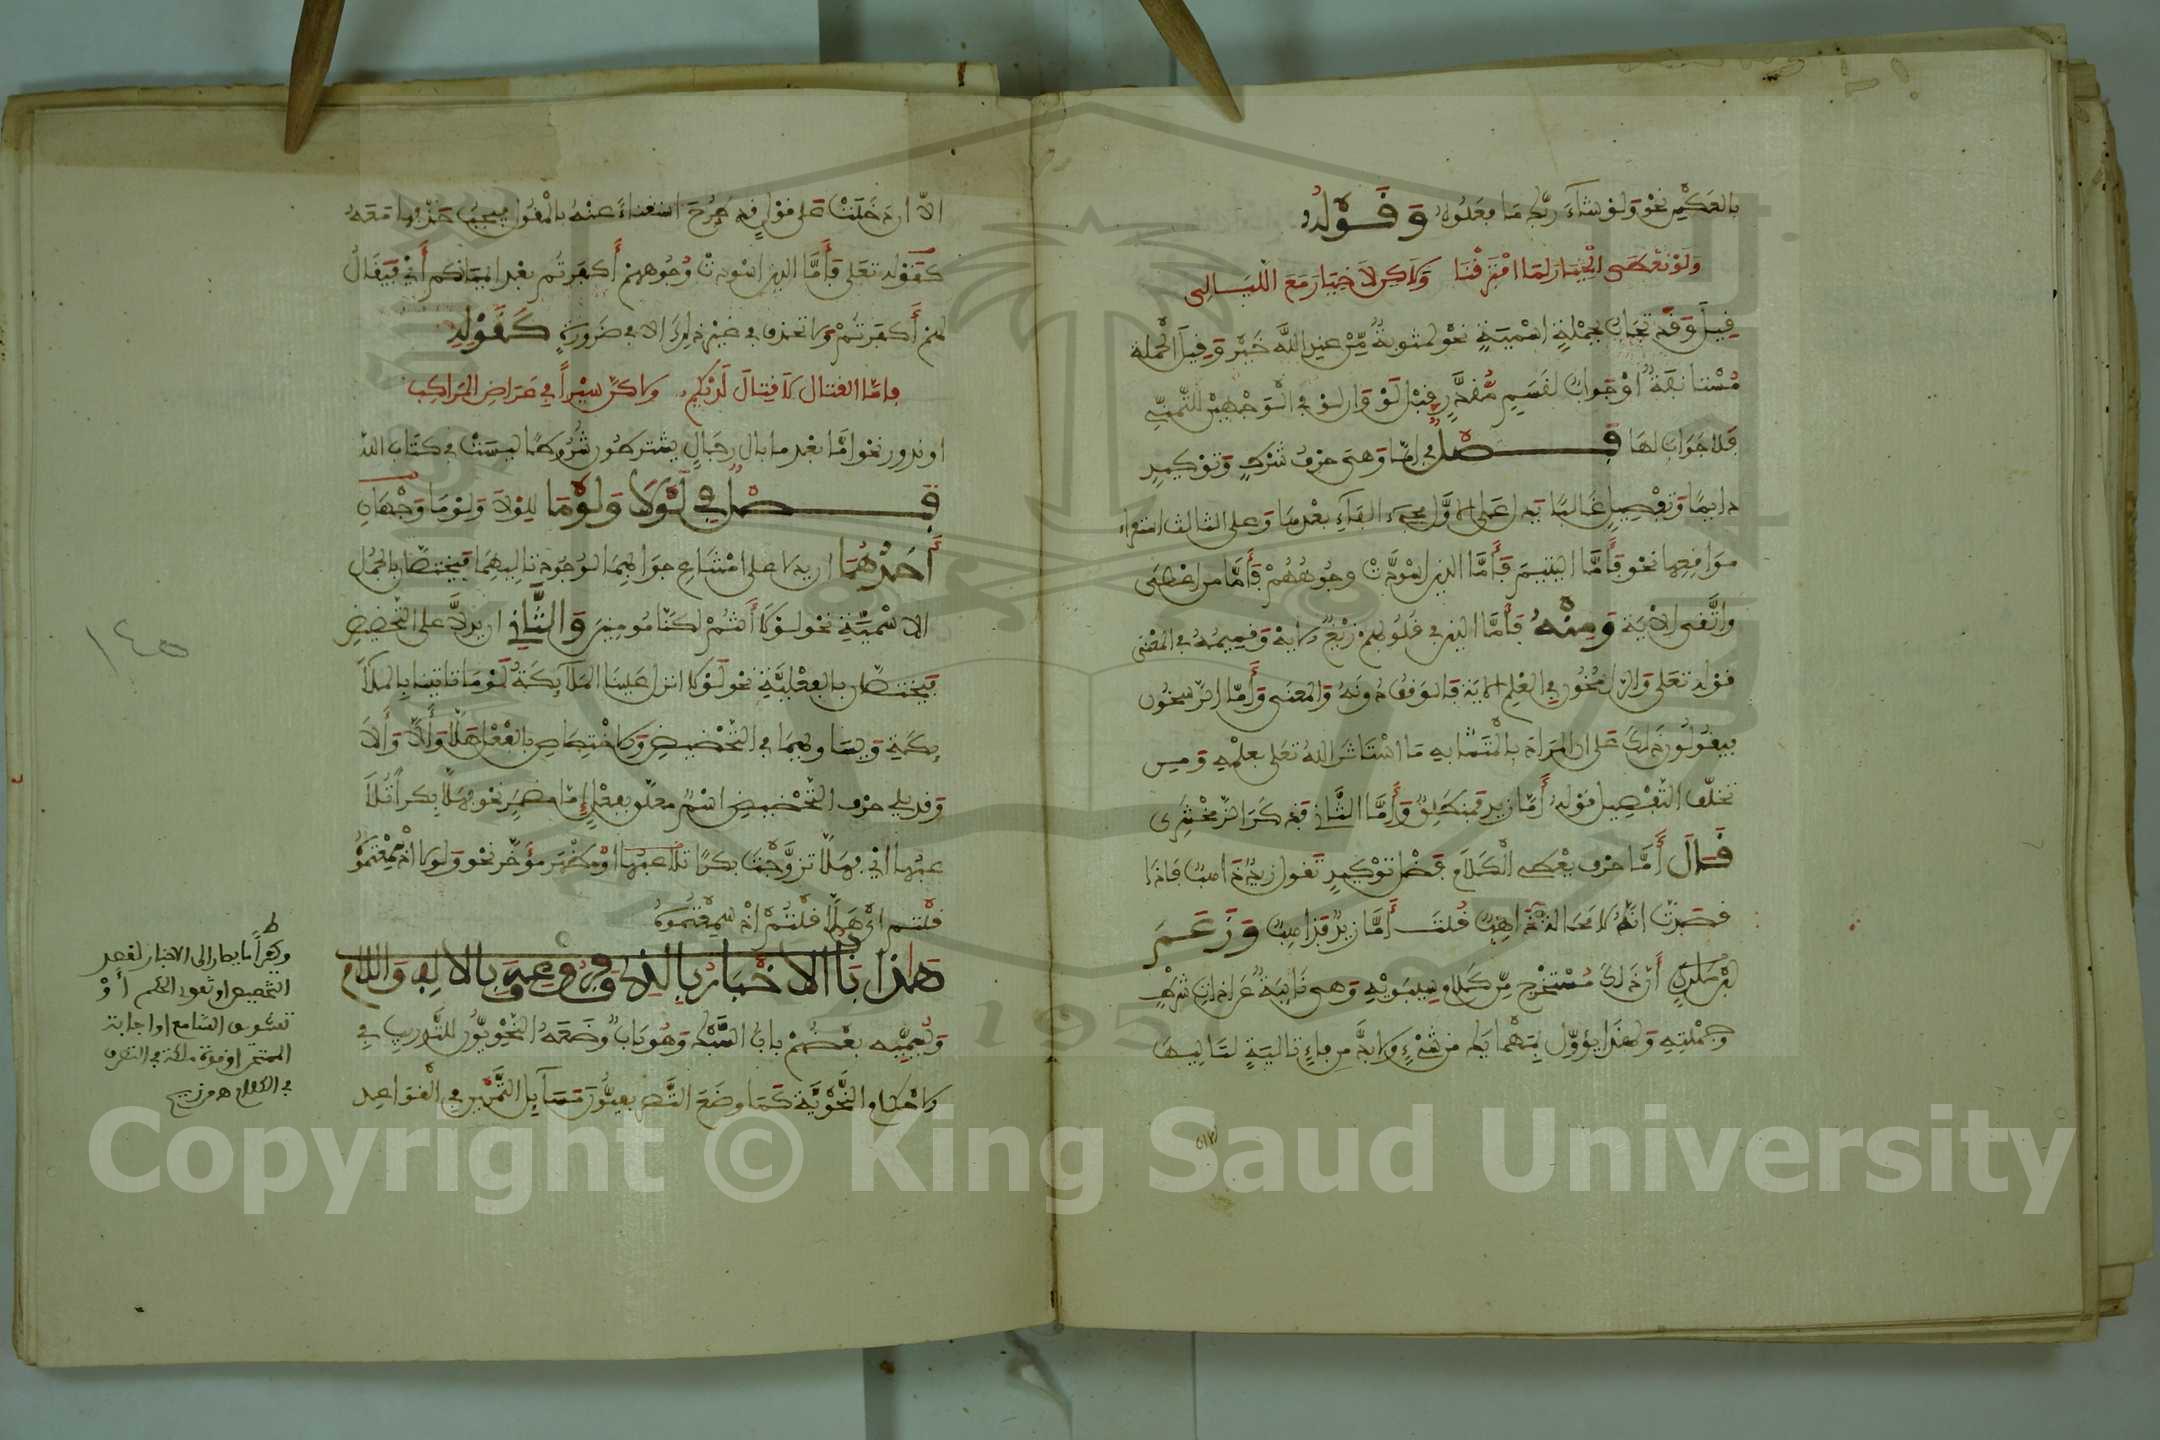 بالعكس نحو ولو شاء ربك ما فعلوه وقوله
ولو نعطى الخيار لما افترقنا ولاكن لا خيار مع الليالي
قيل وقد تجاب بجملة اسمية نحو لمثوبة من عند الله خير وقيل الجملة
مستانفة او جواب لقسم مقدر قبل لو وان لو في الوجهين للتمني
فلا جواب لها فصل في اما وهي حرف شرط وتوكيد
دايما وتفصيل غالبا يدل على الاول مجيء الفاء بعدها وعلى الثالث استقراء
مواقعها نحو فأما اليتيم فأما الذين اسودت وجوههم فأما من اعطى
واتقى الاية ومنه فأما الذين في قلوبهم زيغ الاية وقسيمه في المعنى
قوله تعلى والراسخون في العلم الاية فالوقف دونه والمعنى وأما الراسخون
فيقولون ذلك على ان المراد بالمتشابه ما استاثر الله تعلى بعلمه ومن
تخلف التفصيل قوله أما زيد فمنطلق وأما الثاني فذكره الزمخشري
فقال أما حرف يعطي الكلام فضل توكيد تقول زيد ذاهب فاذا
قصدت انه لا محالة ذاهب قلت أما زيد فذاهب وزعم
أن ذلك مستخرج من كلام سيبويه وهي نايبة عن اداة شرط
وجملته ولهذا يؤول بمهما يك من شيء ولا بد من فاء تالية لتاليها
الا ان دخلت على قول قد طرح استغناء عنه بالمقول فيجب حذفها معه
كقوله تعلى فأما الذين اسودت وجوههم أكفرتم بعد ايمانكم أي فيقال
لهم أكفرتم ولا تحذف في غير ذلك الا في ضرورة كقوله
فاما القتال لا قتال لديكم ولاكن سيرا في عراض المراكب
او ندور نحو اما بعد ما بال رجال يشترطون شروطا ليست في كتاب الله
فصل في لولا ولوما للولا ولوما وجهان
أحدهما ان يدلا على امتناع جوابهما لوجود تاليهما فيختصان بالجمل
الاسمية نحو لولا أنتم لكنا مومنين والثاني ان يدلا على التحضيض
فيختصان بالفعلية نحو لولا انزل علينا الملائكة لوما تاتينا بالملا
يكة ويساويهما في التحضيض والاختصاص بالفعل هلا وألا وألا
وقد يلي حرف التحضيض اسم معلق بفعل إما مضمر نحو فهلا بكرا تلا
عبها أي فهلا تزوجت بكرا تلاعبها او مظهر مؤخر نحو ولولا اذ سمعتموه
قلتم اي هلا قلتم اذ سمعتموه
هذا باب الاخبار بالذي وفروعه وبالالف واللام
ويسميه بعضهم باب السبك وهو باب وضعه النحويون للتدريب في
الاحكام النحوية كما وضع التصريفيون مسايل التمرين في القواعد
١٤٥
ط
وكثيرا ما يصار الى الاخبار لقصد
التخصيص او تقوى الحكم أو
تشويق السامع او اجابة
الممتحن او قوة ملكة في التصرف
في الكلام هـ
Copyright © King Saud University
1957